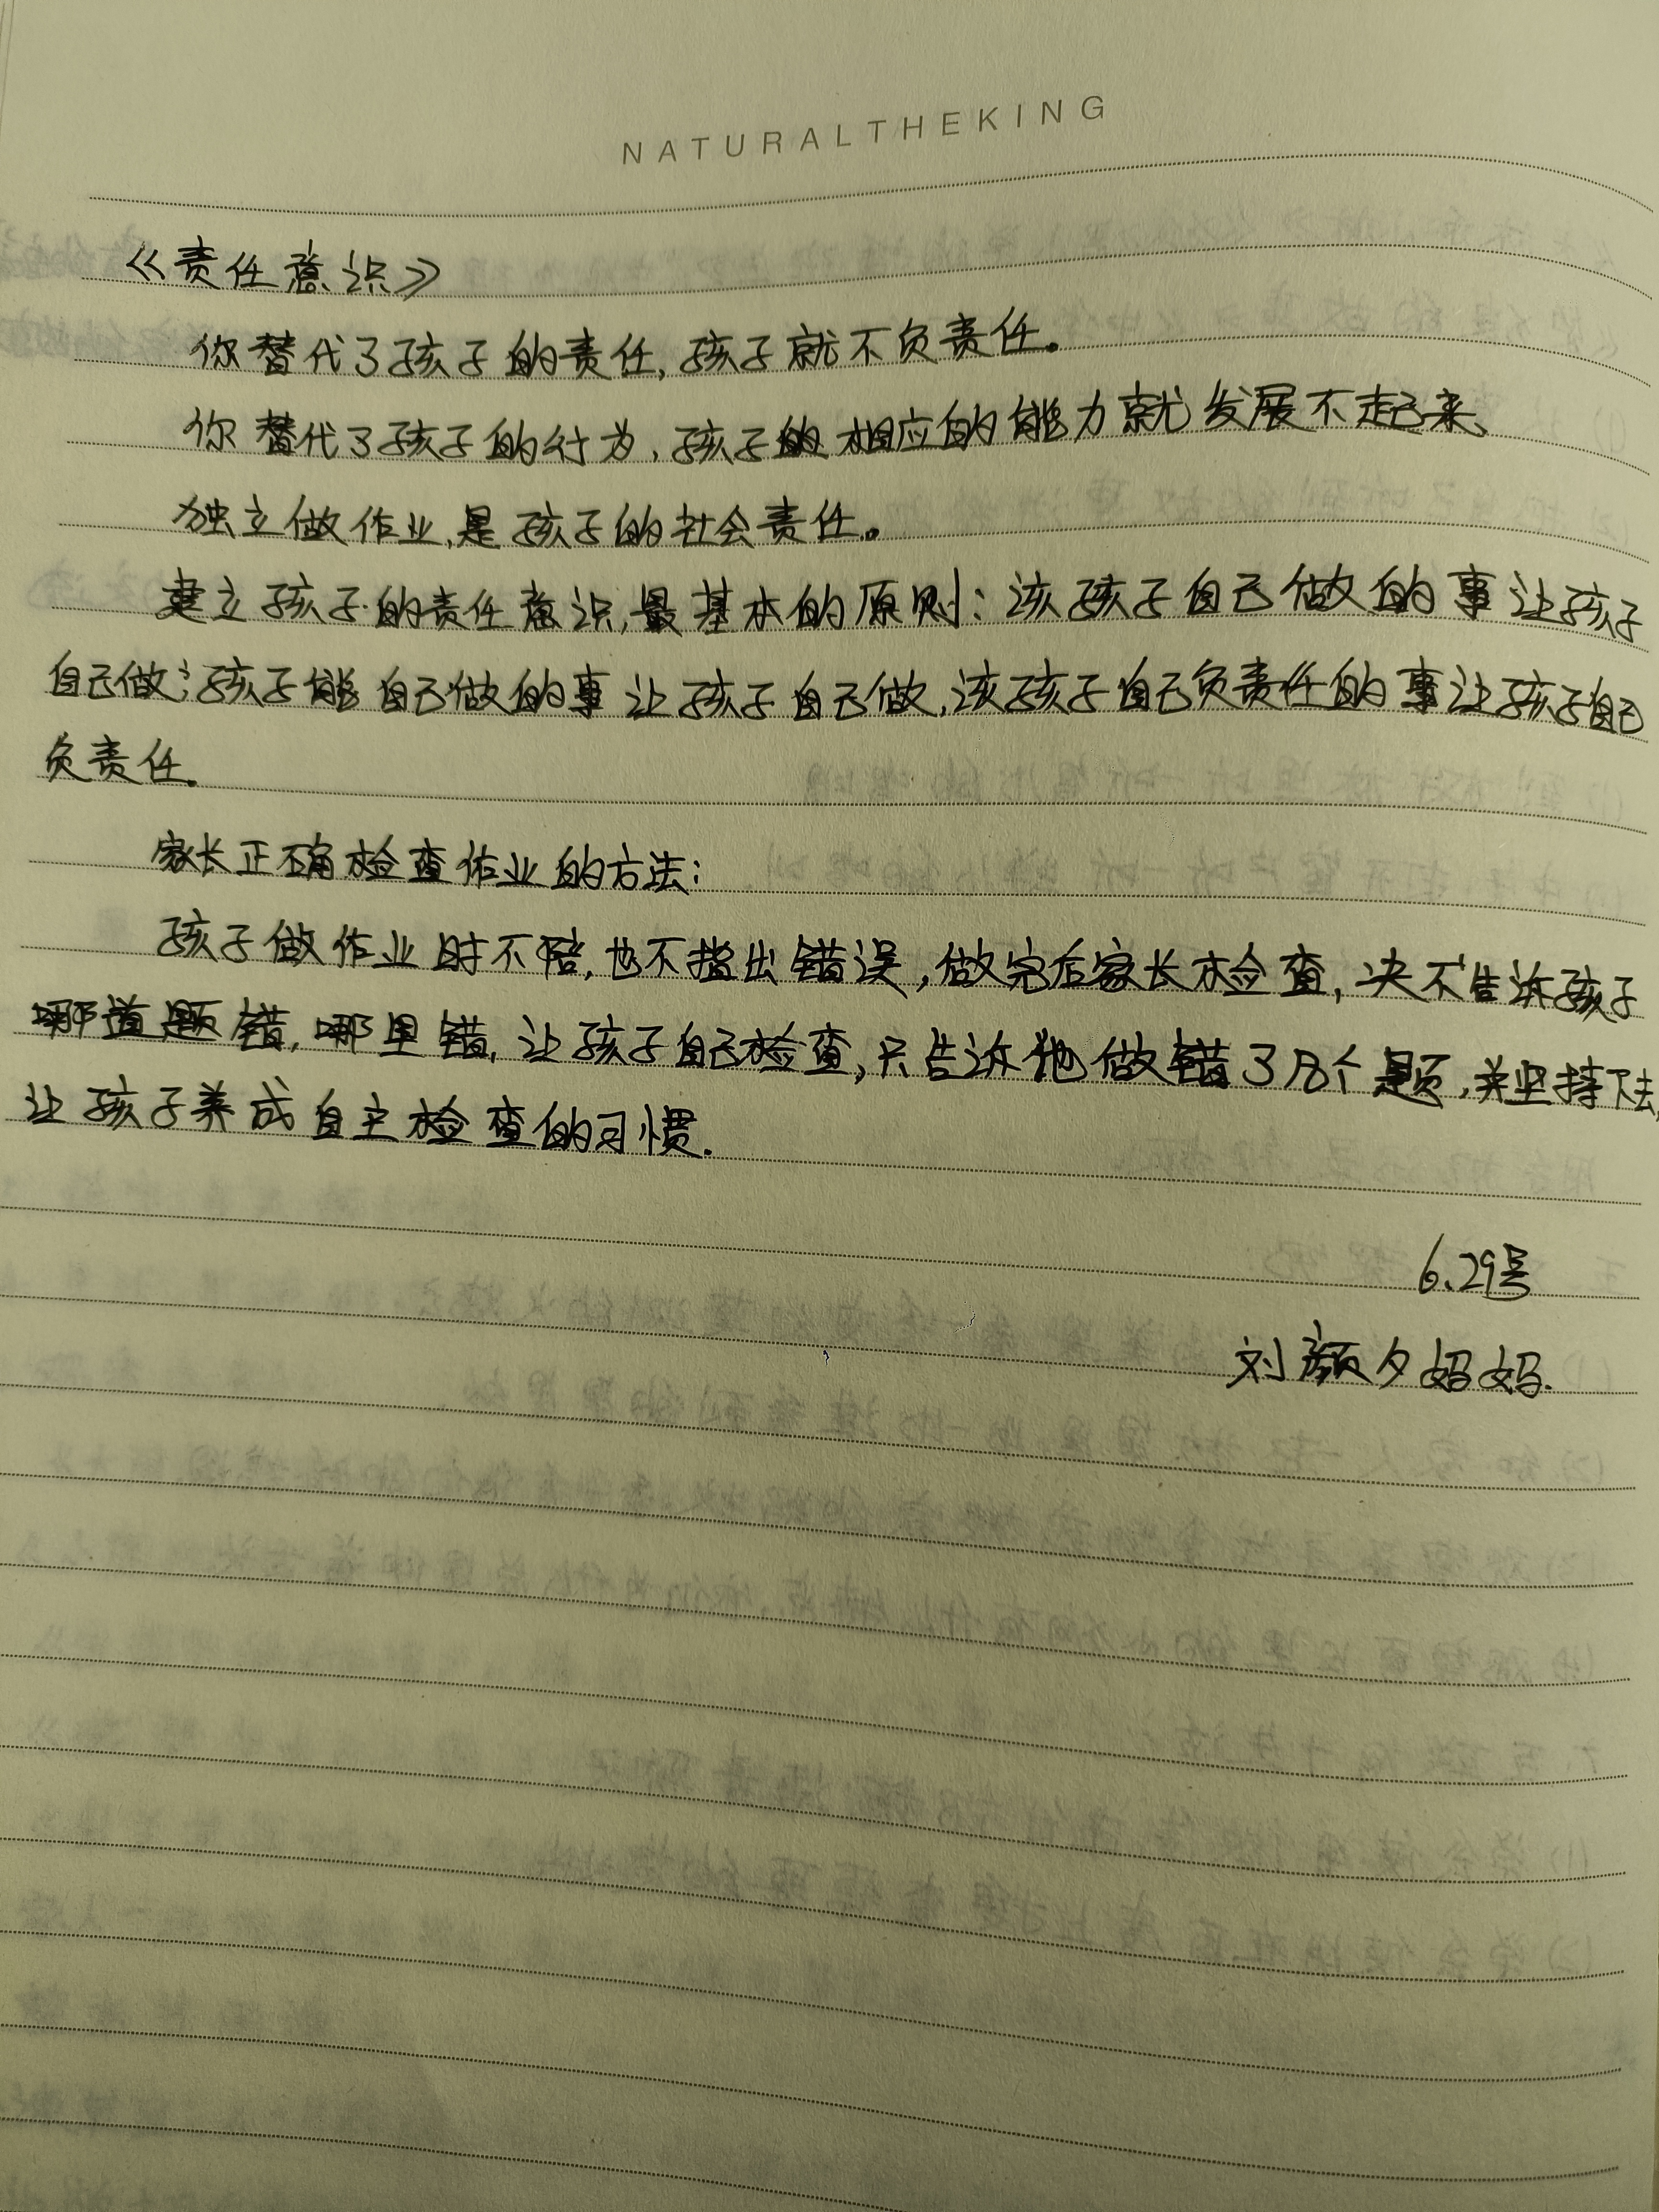 NATURALTHEKING
《责任意识》
你替代了孩子的责任,孩子就不负责任。
你替代了孩子的行为,孩子的相应的能力就发展不起来。
独立做作业,是孩子的社会责任。
建立孩子的责任意识,最基本的原则:该孩子自己做的事让孩子
自己做;孩子能自己做的事让孩子自己做,该孩子自己负责任的事让孩子自己
负责任.
家长正确检查作业的方法:
孩子做作业时不陪,也不指出错误,做完后家长检查,决不告诉孩子
哪道题错,哪里错,让孩子自己检查,只告诉他做错了几个题,并坚持下去,
让孩子养成自主检查的习惯.
6.29号
刘颜夕妈妈.